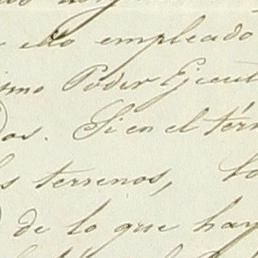 ello empleado
smo Poder Ejecut
os. Si en el tér
s terrenos, lo
de lo que hay